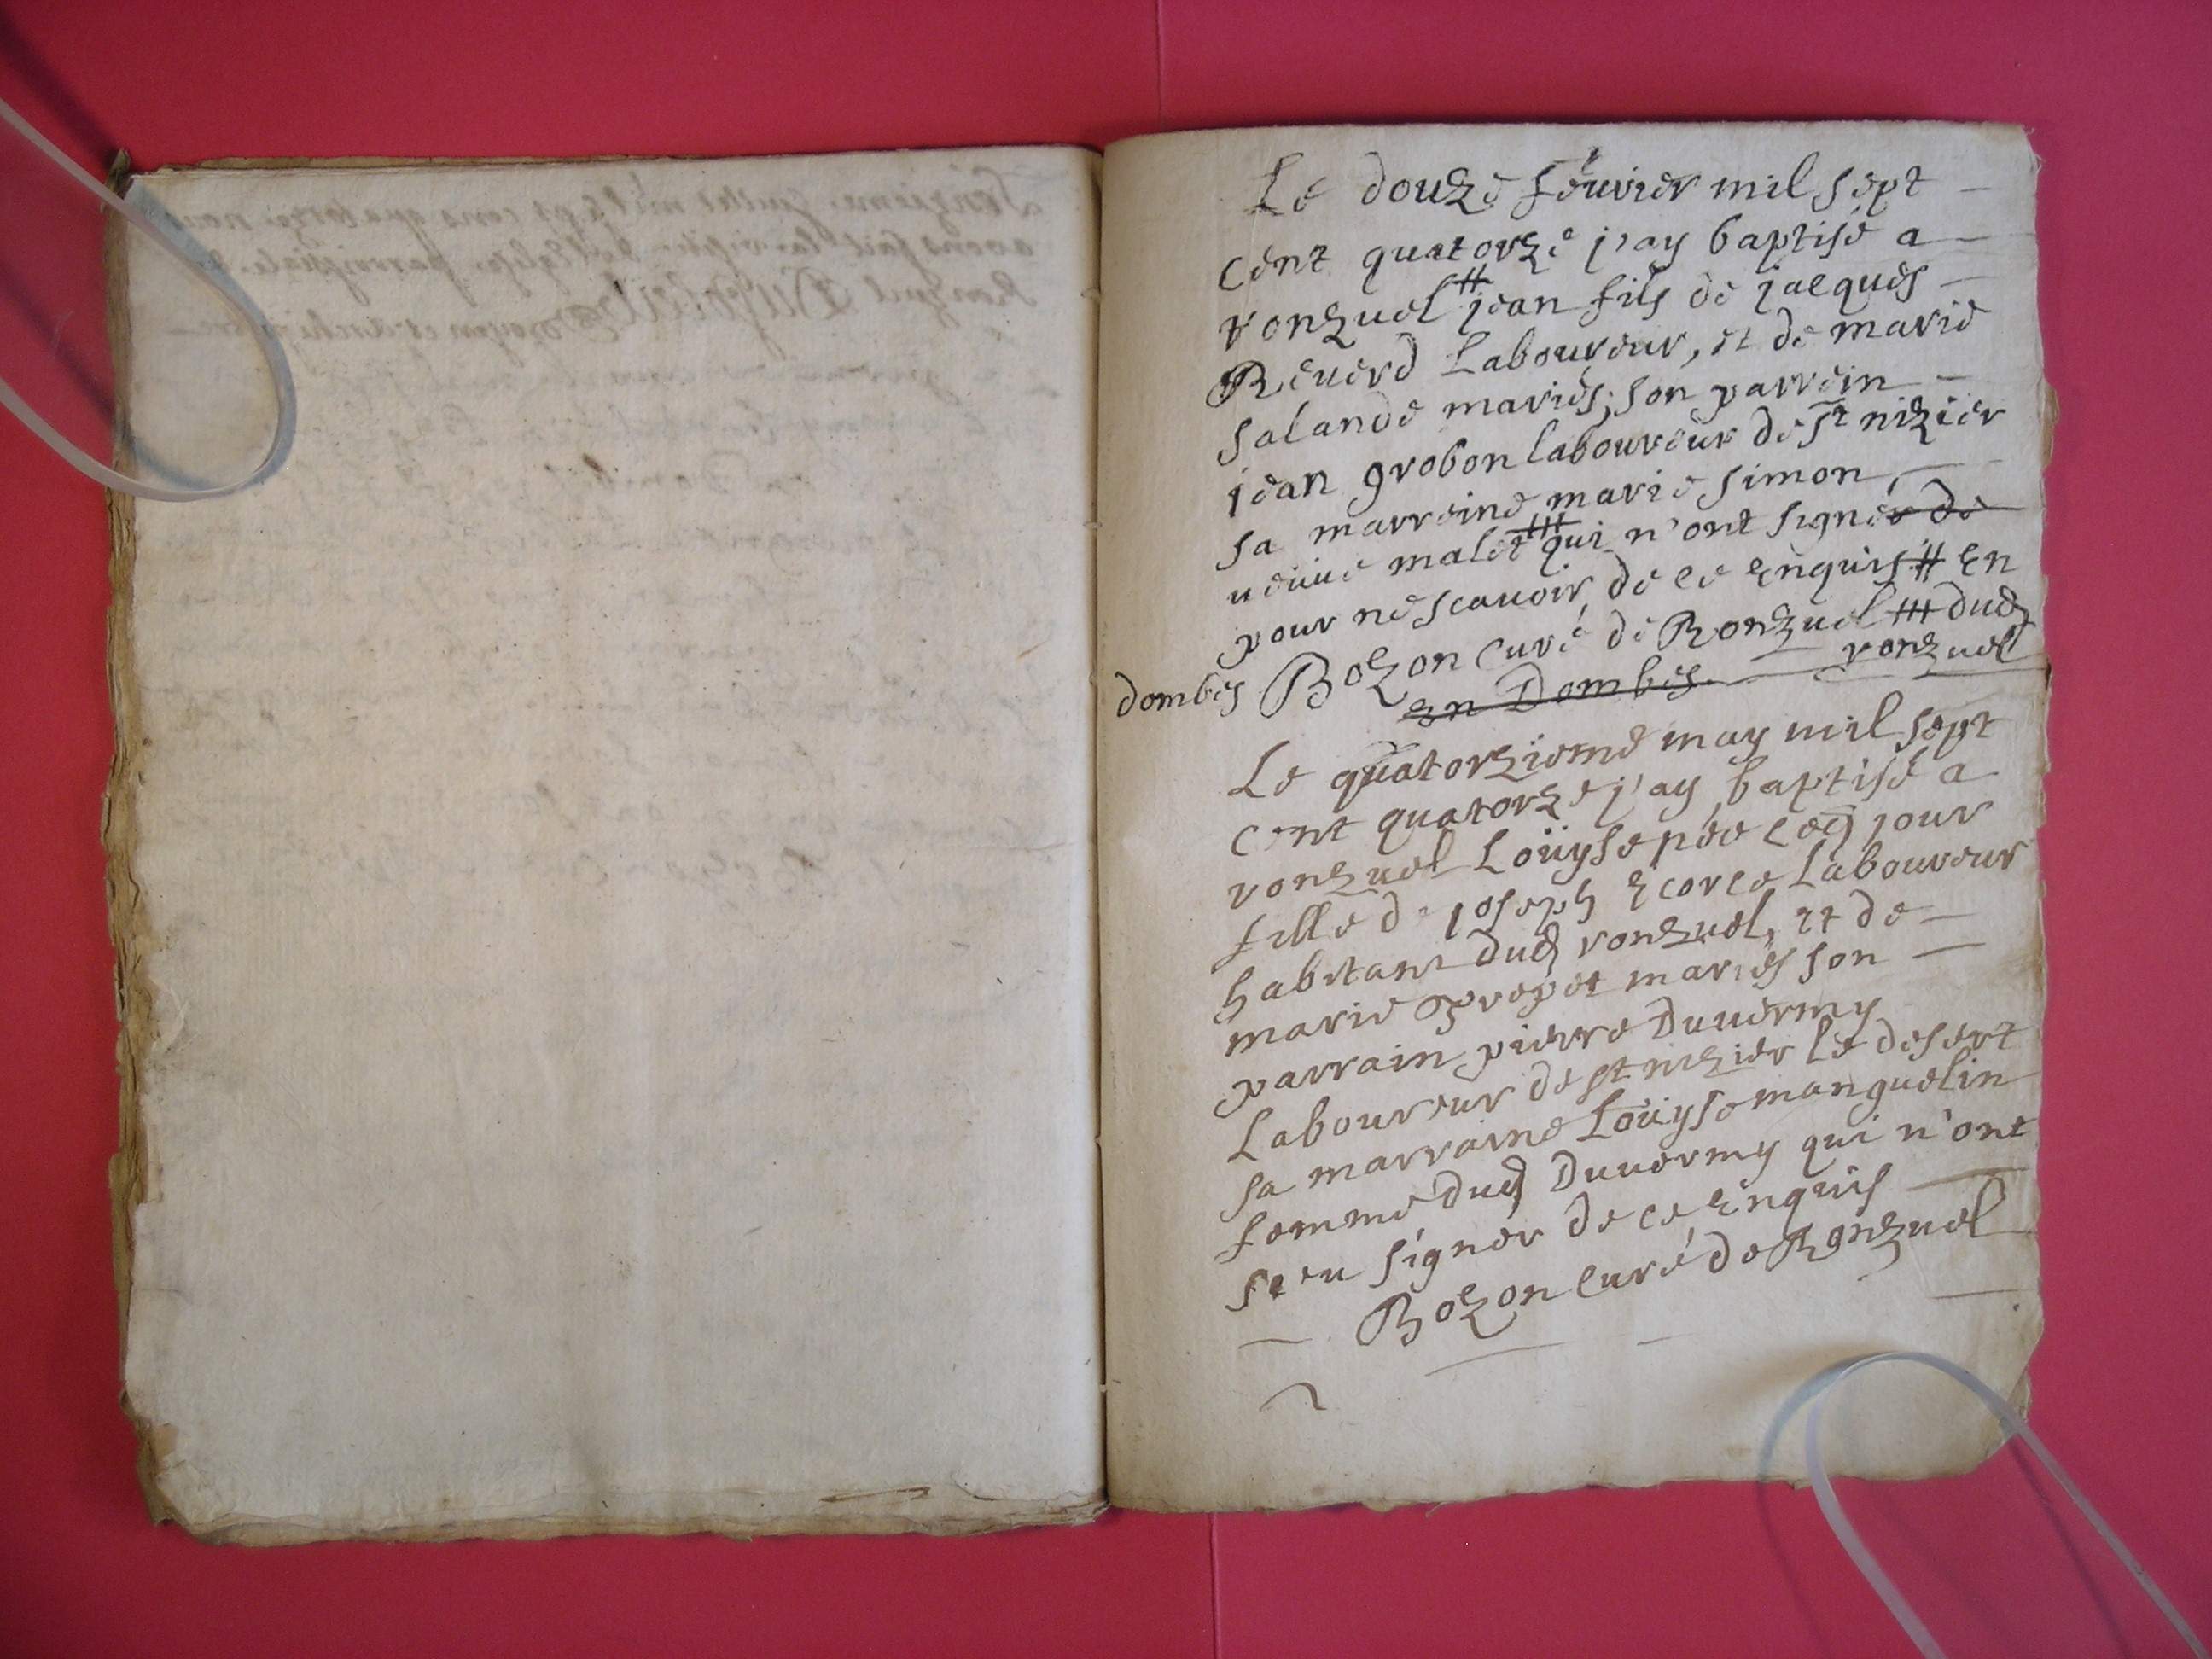 Le douze feuvrier mil sept
cent quatorze j'ay baptisé a
ronzuel # jean fils de jacques
Reverd Laboureur, et de marie
salande mariés, son parrein
jean grobon laboureur de st nizier
sa marreine marie simon,
ueuue malet ⧻ qui n'ont signér de
pour ne scauoir, de ce Enquis # En
Bozon Curé de Ronzuel ⧻ dud
dombes
ronzuel
en Dombes
Le quatorzieme may mil sept
cent quatorze j'ay baptisé a
ronzuel Loüyse née led jour
fille de joseph Ecorce Laboureur
habitant dud ronzuel, et de
marie prepet mariés son
parrain pierre Duuermy
Laboureur de st nizier le desert
sa marraine Loüyse manguelin
femme dud Duuermy qui n'ont
sceu signer de ce Enquis
Bozon Curé de Ronzuel